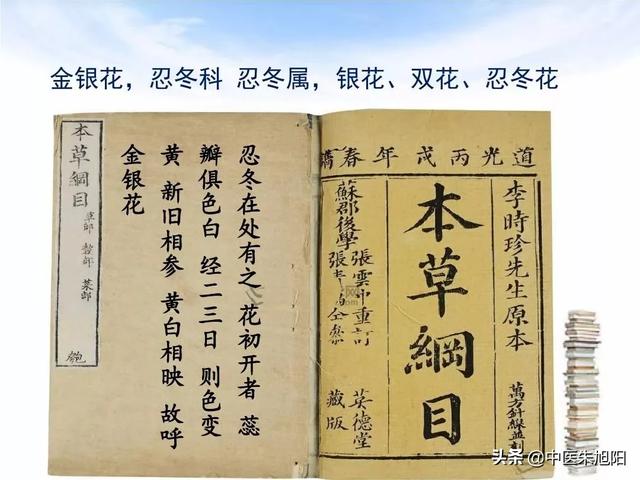 金银花，忍冬科 忍冬属，银花、双花、忍冬花
本草綱目
草部
菜部
忍冬在处有之 花初开者 蕊
瓣俱色白 经二三日 则色变
黄 新旧相参 黄白相映 故呼
金银花
道光丙戌年春鐫
李時珍先生原本
本草綱目
蘇郡後學
張雲中重訂
張
萬方針線並刻
英德堂
藏版
头条 @中医朱旭阳